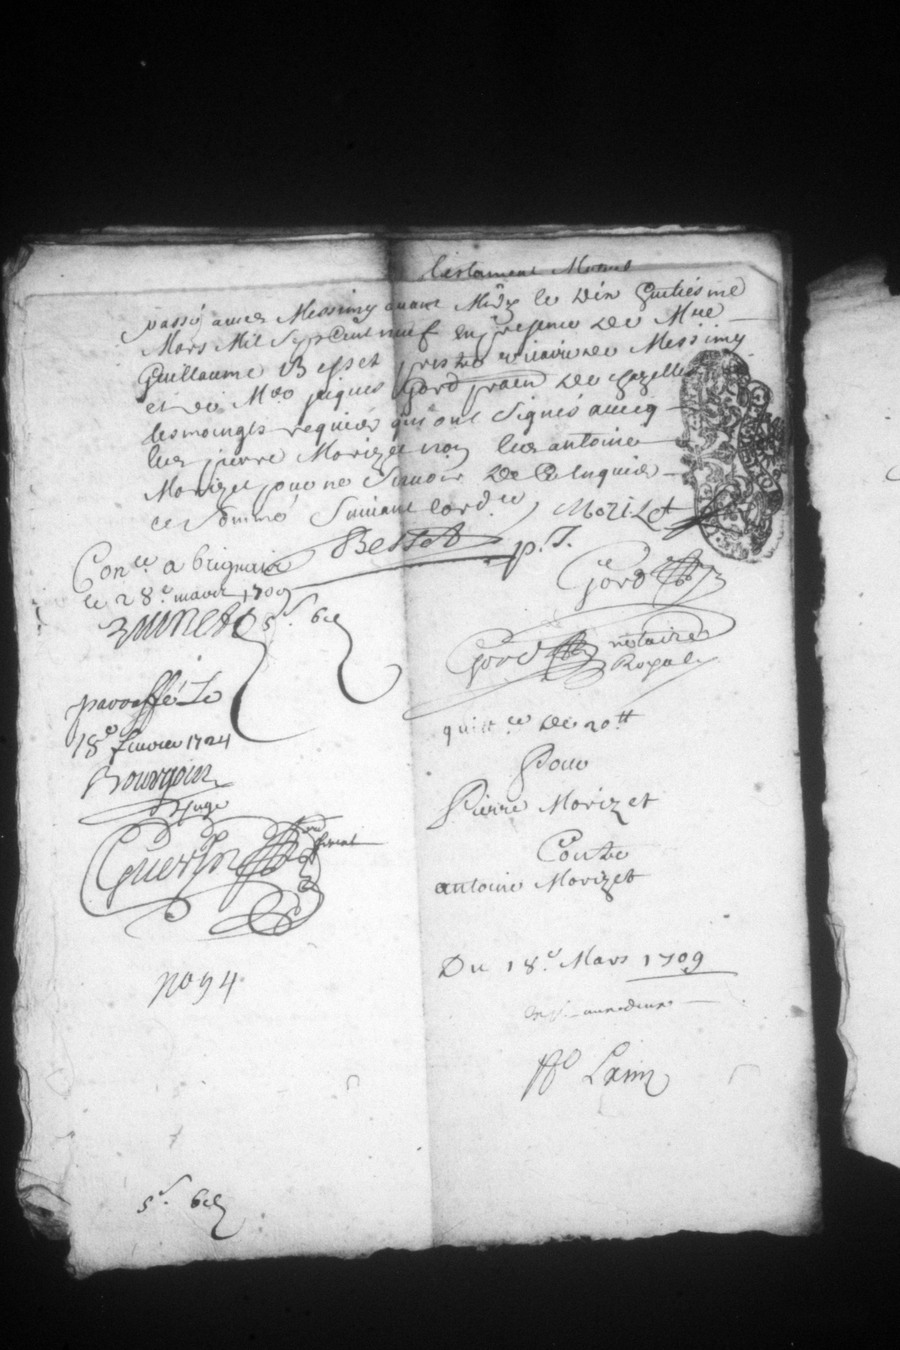 testament Mutuel
passé aud. Messimy avant Midy le dix huitiesme
Mars Mil Sept Cent neuf En presence de Mre
Guillaume Besset prestre vicaire de Messimy
et de Mo. Jaques Gord prain de Chazelles
tesmoingts requis qui ont Signés avecq
led. pierre Morizet non led. antoine
Morizet pour ne Scavoir De Ce Enquis
et Sommé Suivant lord.ce
Morizet
Besset p.t.
Con.lé a brignais
le 28.e mars 1709
5s. 6d
Gord
Gord notaire Royal
paraffé Le
18e fevrier 1724
Bourgoin
Juge
Guerin
quitt.ce de 20tt
Pour
Pierre Morizet
Contre
antoine Morizet
Du 18.e Mars 1709
no 94
5s. 6d